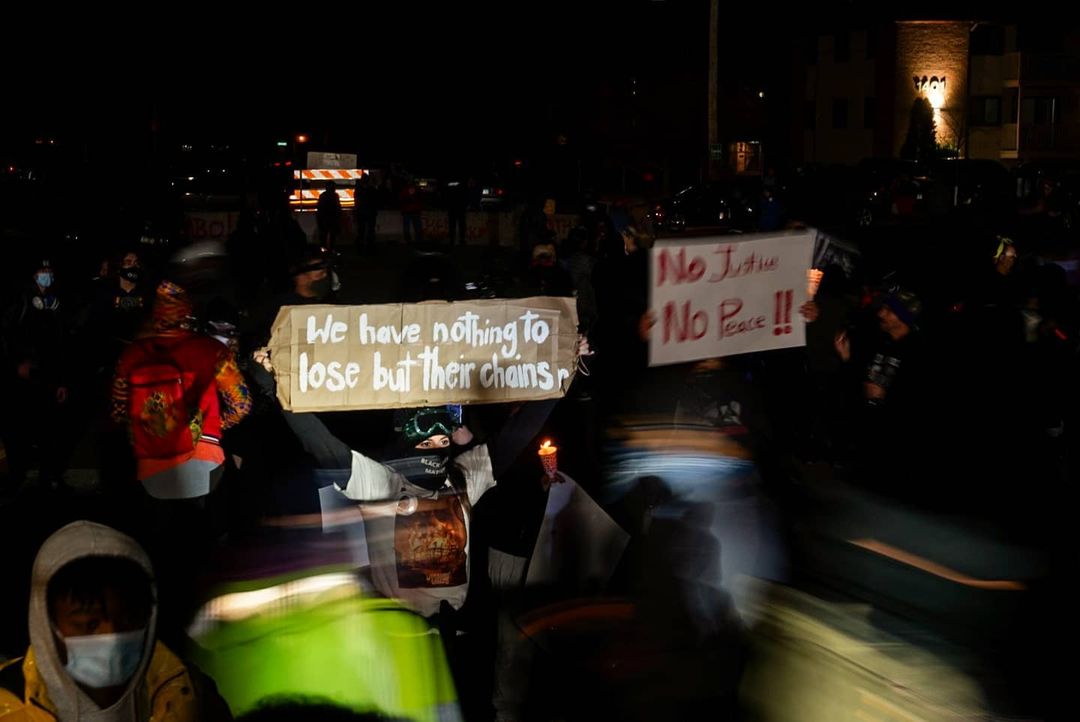 We have nothing to
lose but their chains
No Justice
No Peace !!
BLACK